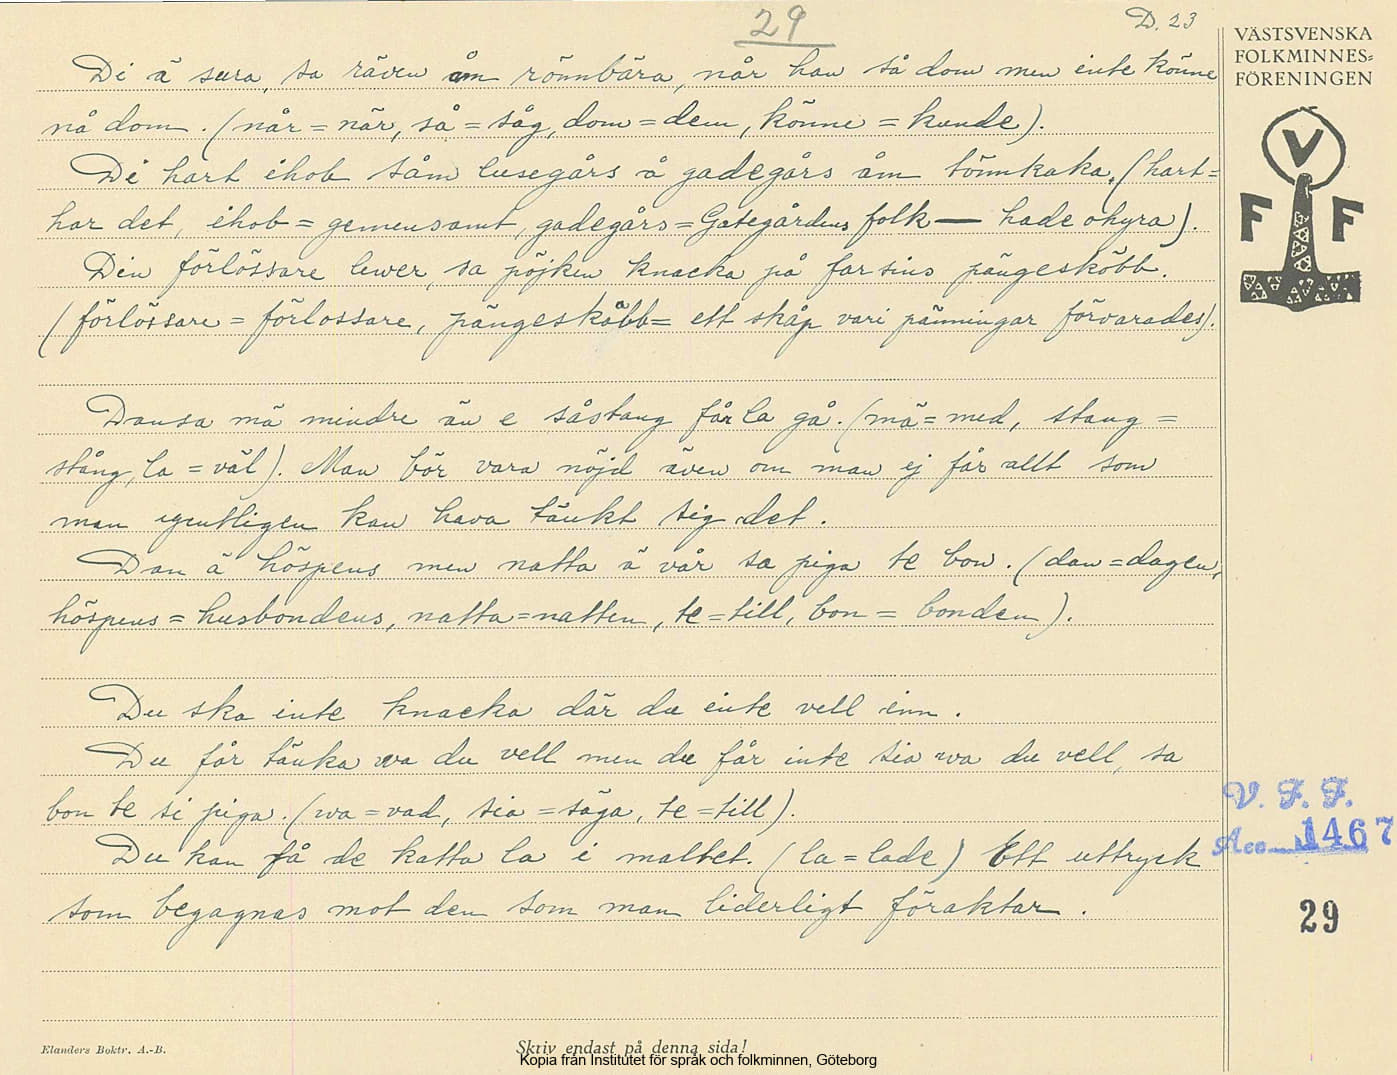 29
D. 23
VÄSTSVENSKA
FOLKMINNES-
FÖRENINGEN
Di ä sura, sa räven åm rönnbära, når han så dom men einte könne
nå dom. (når = när, så = såg, dom = dem, könne = kunde).
Di hart ihob såm lusegårs å gadegårs åm tönnkaka. (hart =
har det, ihob = gemensamt, gadegårs = Gategårdens folk — hade ohyra).
Den förlössare lewer, sa pöjken knacka på farsins pängesköbb.
(förlössare = förlossare, pängesköbb = ett skåp vari pänningar förvarades).
Dansa mä mindre än e såstang får la gå. (mä = med, stang =
stång, la = väl). Man bör vara nöjd även om man ej får allt som
man egentligen kan hava tänkt sig det.
Dan ä höspens men natta ä vår sa piga te bon. (dan = dagen,
höspens = husbondens, natta = natten, te = till, bon = bonden).
Du ska inte knacka där du einte vell inn.
Du får tänka wa du vell men du får inte sia wa du vell, sa
bon te si piga. (wa = vad, sia = säga, te = till).
Du kan få de katta la i maltet. (la = lade) Ett uttryck
som begagnas mot den som man liderligt föraktar.
V F F
V. F. F.
Acc. 1467
29
Elanders Boktr. A.-B.
Skriv endast på denna sida!
Kopia från Institutet för språk och folkminnen, Göteborg